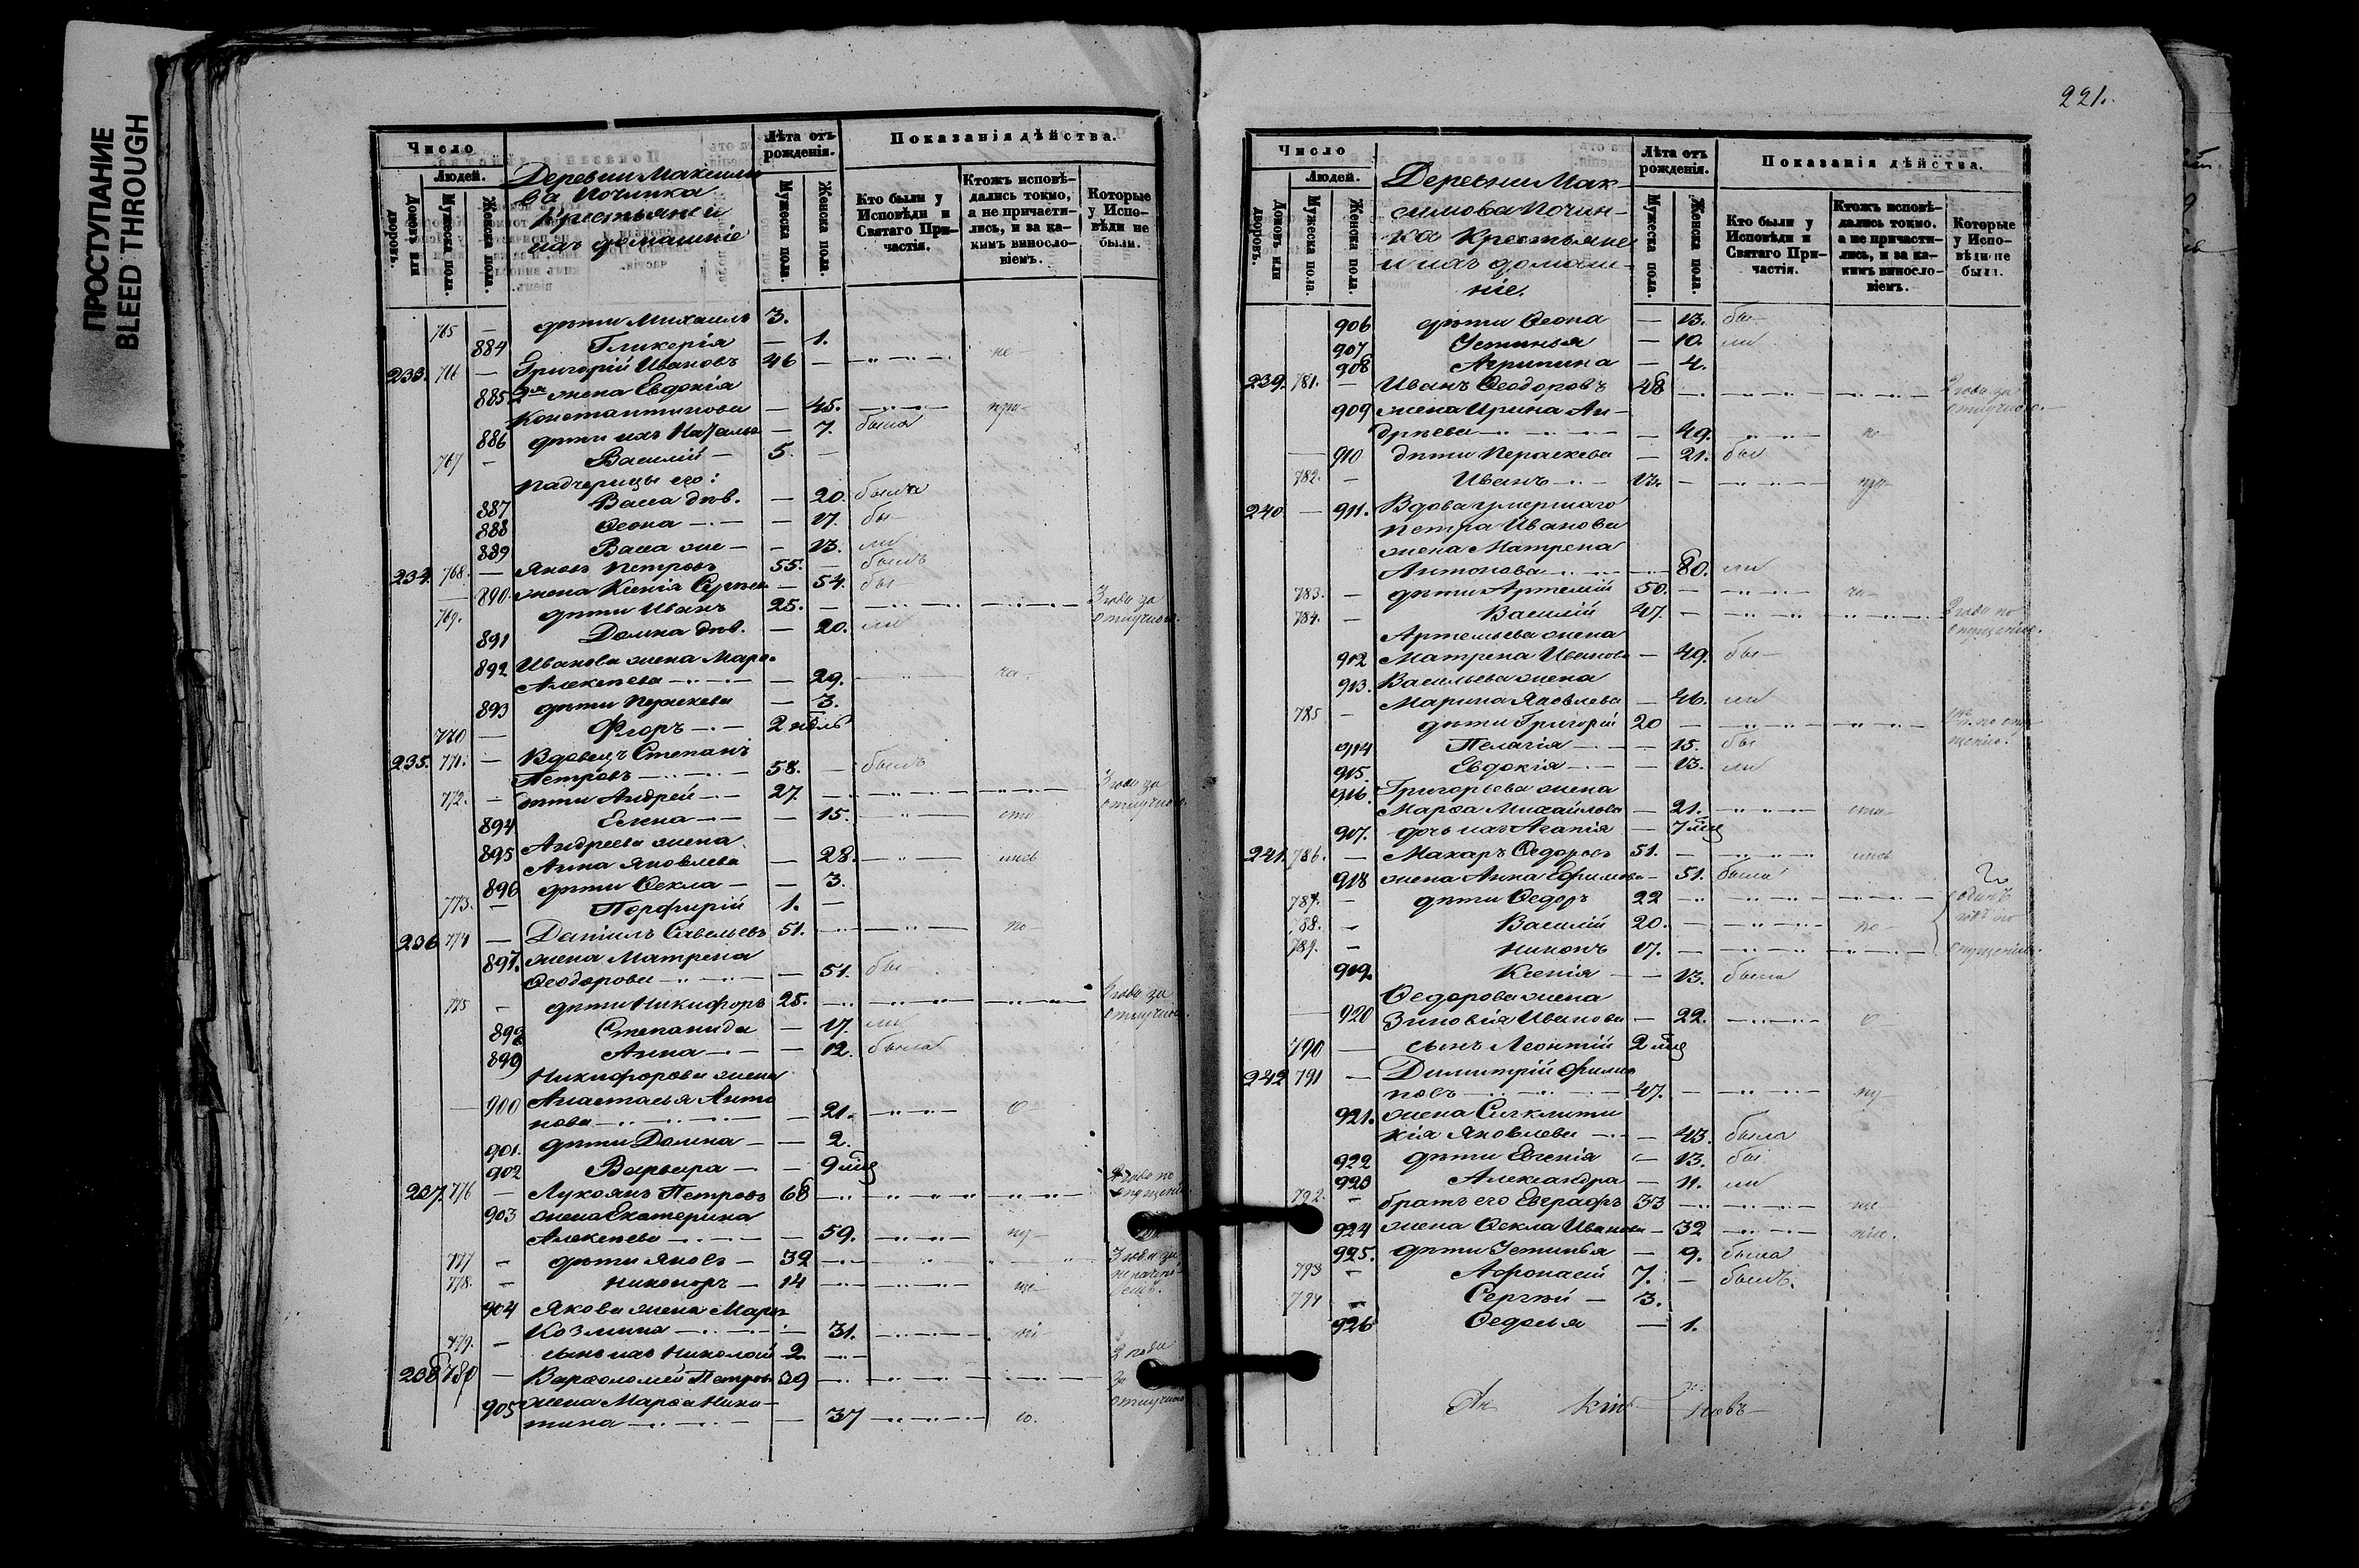 ПРОСТУПАНИЕ
BLEED THROUGH
Число
Людей.
Домовъ или дворовъ.
Мужеска пола.
Женска пола.
Деревни Максимо
ва Починка
Крестьяне и
ихъ домашніе
Лѣта отъ рожденія.
Мужеска пола.
Женска пола.
Показанія дѣйства.
Кто были у Исповѣди и Святаго Причастія.
Ктожъ исповѣдались токмо, а не причастились, и за какимъ винословіемъ.
Которые у Исповѣди не были.
765 — дѣти Михаилъ 3.
884 Гликерія — 1.
233. 766 — Григорій Ивановъ 46 — не-
885 2я жена Евдокія
Константинова — 45. при-
886 дѣти ихъ Наталья — 7. была
767 — Василій — 5. —
Падчерицы его:
887 Васса дѣв. — 20. была
888 Ѳеона — 17. бы-
889 Васса же — 13. ли
234. 768. — Яковъ Петровъ 55. — былъ
890. жена Ксенія Сергѣева — 54. бы-
769. дѣти Иванъ 25. — 3 года за отлучкою.
891 Домна дѣв. — 20. ли
892 Иванова жена Мареа
Алексѣева — 29. ча-
893 дѣти Параскева — 3.
770 — Флоръ 2 недѣль
235. 771. — Вдовецъ Степанъ
Петровъ — 58. — былъ
772. — дѣти Андрей — 27. 3 года за отлучкою.
894 Елена — 15. сти-
895 Андреева жена
Анна Яковлева — 28. лись
896 дѣти Ѳекла — 3.
773. — Порфирій 1. —
236 774 — Даніилъ Савельевъ 51. по-
897. жена Матрена
Ѳеодорова — 51. бы-
775 — дѣти Никифоръ 25. отлучкою.
898 Степанида — 17. ли
899 Анна — 12. была
Никифорова жена
900 Анастасья Анто
нова — 21. о-
901. дѣти Домна — 2.
902 Варвара — 9 мѣс
237. 776 — Лукоянъ Петровъ 68 2 года по опущенію
903 жена Екатерина
Алексѣева — 59. пу-
777 — дѣти Яковъ — 32 3 года за
778. — Никаноръ — 14 ще-
904 Якова жена Мареа
Козмина — 31. ні-
779. — сынъ ихъ Николай 2
238 780 — Варѳоломей Петровъ 39 2 года за отлучкою
905 жена Марѳа Ники-
тина — 37 ю.
221.
Число
Людей.
Домовъ или дворовъ.
Мужеска пола.
Женска пола.
Деревни Мак-
симова Почин-
ка Крестьяне
и ихъ домаш-
ніе.
Лѣта отъ рожденія.
Мужеска пола.
Женска пола.
Показанія дѣйства.
Кто были у Исповѣди и Святаго Причастія.
Ктожъ исповѣдались токмо, а не причастились, и за какимъ винословіемъ.
Которые у Исповѣди не были.
906 дѣти Ѳеона — 13. бы-
907 Устинья — 10. ли
908 Агрипина — 4.
239. 781. — Иванъ Ѳеодоровъ 48 2 года за отлучкою.
909 жена Ирина Ан-
дрѣева — 49. не-
910 дѣти Параскева — 21. был
782. — Иванъ — 13. — при-
240 — 911. Вдова умершаго
Петра Иванова
жена Матрена
Антонова — 80. ли
783. — дѣти Артемій 50. — ча-
784. — Василій 47. — 2 года по опущенію.
Артемьева жена
912 Матрена Иванова — 49. бы-
913. Васильева жена
Марина Яковлева — 46. ли
785 — дѣти Григорій 20 — по опу-
щенію.
914 Пелагія — 15. бы
915. Евдокія — 13. ли
916. Григорьева жена
Марѳа Михайлова — 21. сти-
917. дочь ихъ Агапія — 7 мѣс
241. 786. — Макаръ Ѳедоровъ 51. — лись
918 жена Анна Ефимова — 51. была
787. — дѣти Ѳедоръ 22
788. — Василій 20. — по-
789. — Никонъ 17. —
одинъ годъ по опущенію.
919. Ксенія — 13. была
Ѳедорова жена
920 Зиновія Иванова — 22. о-
790 — сынъ Леонтій 2 мѣс
242 791 — Димитрій Филип
повъ — 47. — пу-
921. жена Сигклити
кія Яковлева — 43. была
922 дѣти Евгенія — 13. бы
923 Александра — 11. ли
792. — братъ его Евграфъ 33 ще-
924 жена Ѳекла Иванова — 32 нію.
925. дѣти Устинья — 9. была
793 — Аѳонасій 7. — былъ.
794 — Сергѣй — 3.
926 Ѳедосья — 1.